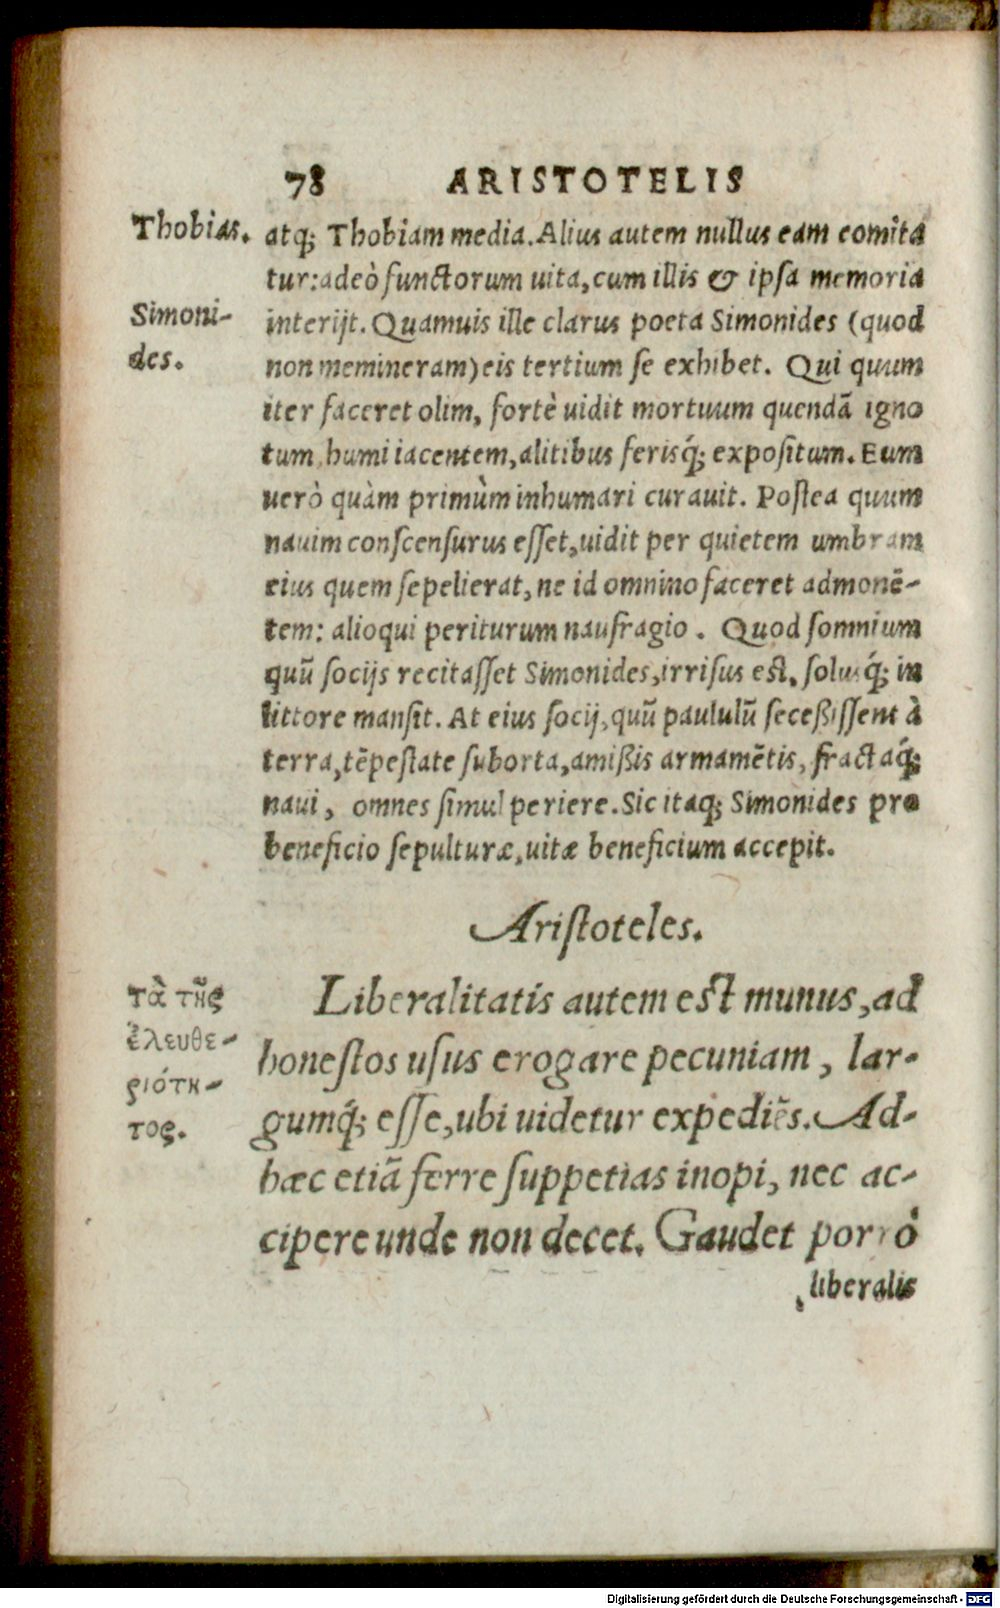 78 ARISTOTELIS
Thobias.
atq; Thobiam media. Alius autem nullus eam comita
tur: adeò functorum uita, cum illis & ipsa memoria
Simoni-
des.
interijt. Quamuis ille clarus poeta Simonides (quod
non memineram) eis tertium se exhibet. Qui quum
iter faceret olim, fortè uidit mortuum quendã igno
tum, humi iacentem, alitibus ferisq́; expositum. Eum
uerò quàm primùm inhumari curauit. Postea quum
nauim conscensurus esset, uidit per quietem umbram
eius quem sepelierat, ne id omnino faceret admonẽ-
tem: alioqui periturum naufragio. Quod somnium
quũ socijs recitasset Simonides, irrisus est, solusq́; in
littore mansit. At eius socij, quũ paululũ seceßissent à
terra, tẽpestate suborta, amißis armamẽtis, fractaq́;
naui, omnes simul periere. Sic itaq; Simonides pro
beneficio sepulturæ, uitæ beneficium accepit.
Aristoteles.
τὰ τῆς
ἐλευθε-
ριότη-
τος.
Liberalitatis autem est munus, ad
honestos usus erogare pecuniam, lar-
gumq́; esse, ubi uidetur expediẽs. Ad-
hæc etiã ferre suppetias inopi, nec ac-
cipere unde non decet. Gaudet porrò
liberalis
Digitalisierung gefördert durch die Deutsche Forschungsgemeinschaft - DFG